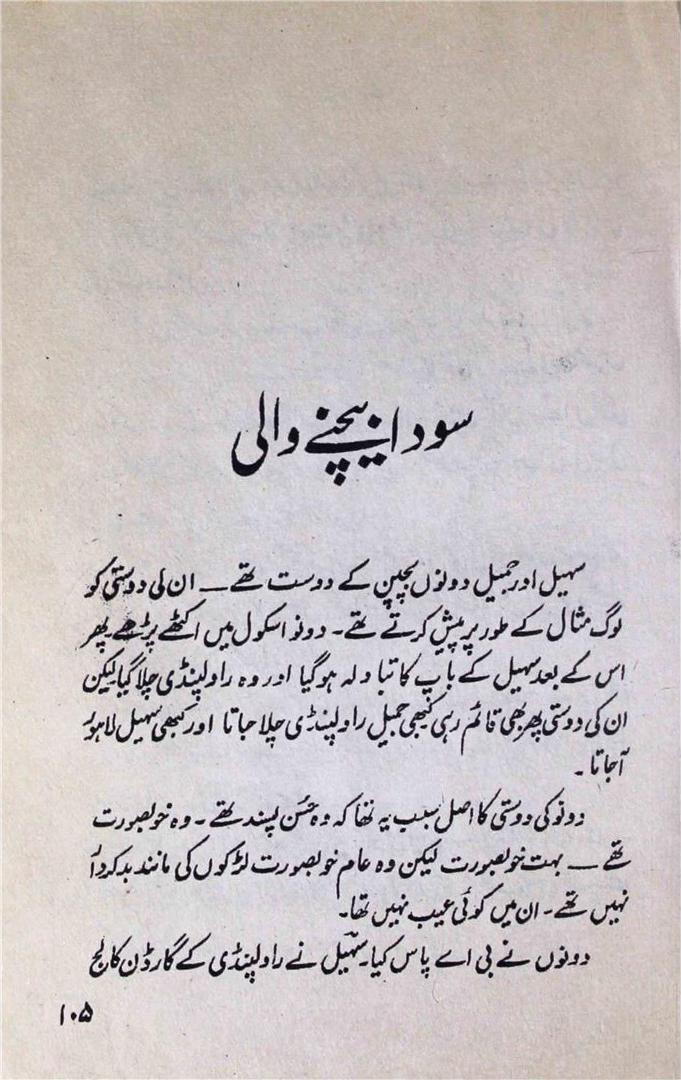 سودا بیچنے والی
سہیل اور جمیل دونوں بچپن کے دوست تھے — ان کی دوستی کو
لوگ مثال کے طور پر پیش کرتے تھے۔ دونو اسکول میں اکٹھے پڑھے پھر
اس کے بعد سہیل کے باپ کا تبادلہ ہوگیا اور وہ راولپنڈی چلا گیا لیکن
ان کی دوستی پھر بھی قائم رہی کبھی جمیل راولپنڈی چلا جاتا اور کبھی سہیل لاہور
آجاتا۔
دونو کی دوستی کا اصل سبب یہ تھا کہ وہ حسن پسند تھے۔ وہ خوبصورت
تھے — بہت خوبصورت لیکن وہ عام خوبصورت لڑکوں کی مانند بدکردار
نہیں تھے۔ ان میں کوئی عیب نہیں تھا۔
دونوں نے بی اے پاس کیا۔ سہیل نے راولپنڈی کے گارڈن کالج
۱۰۵